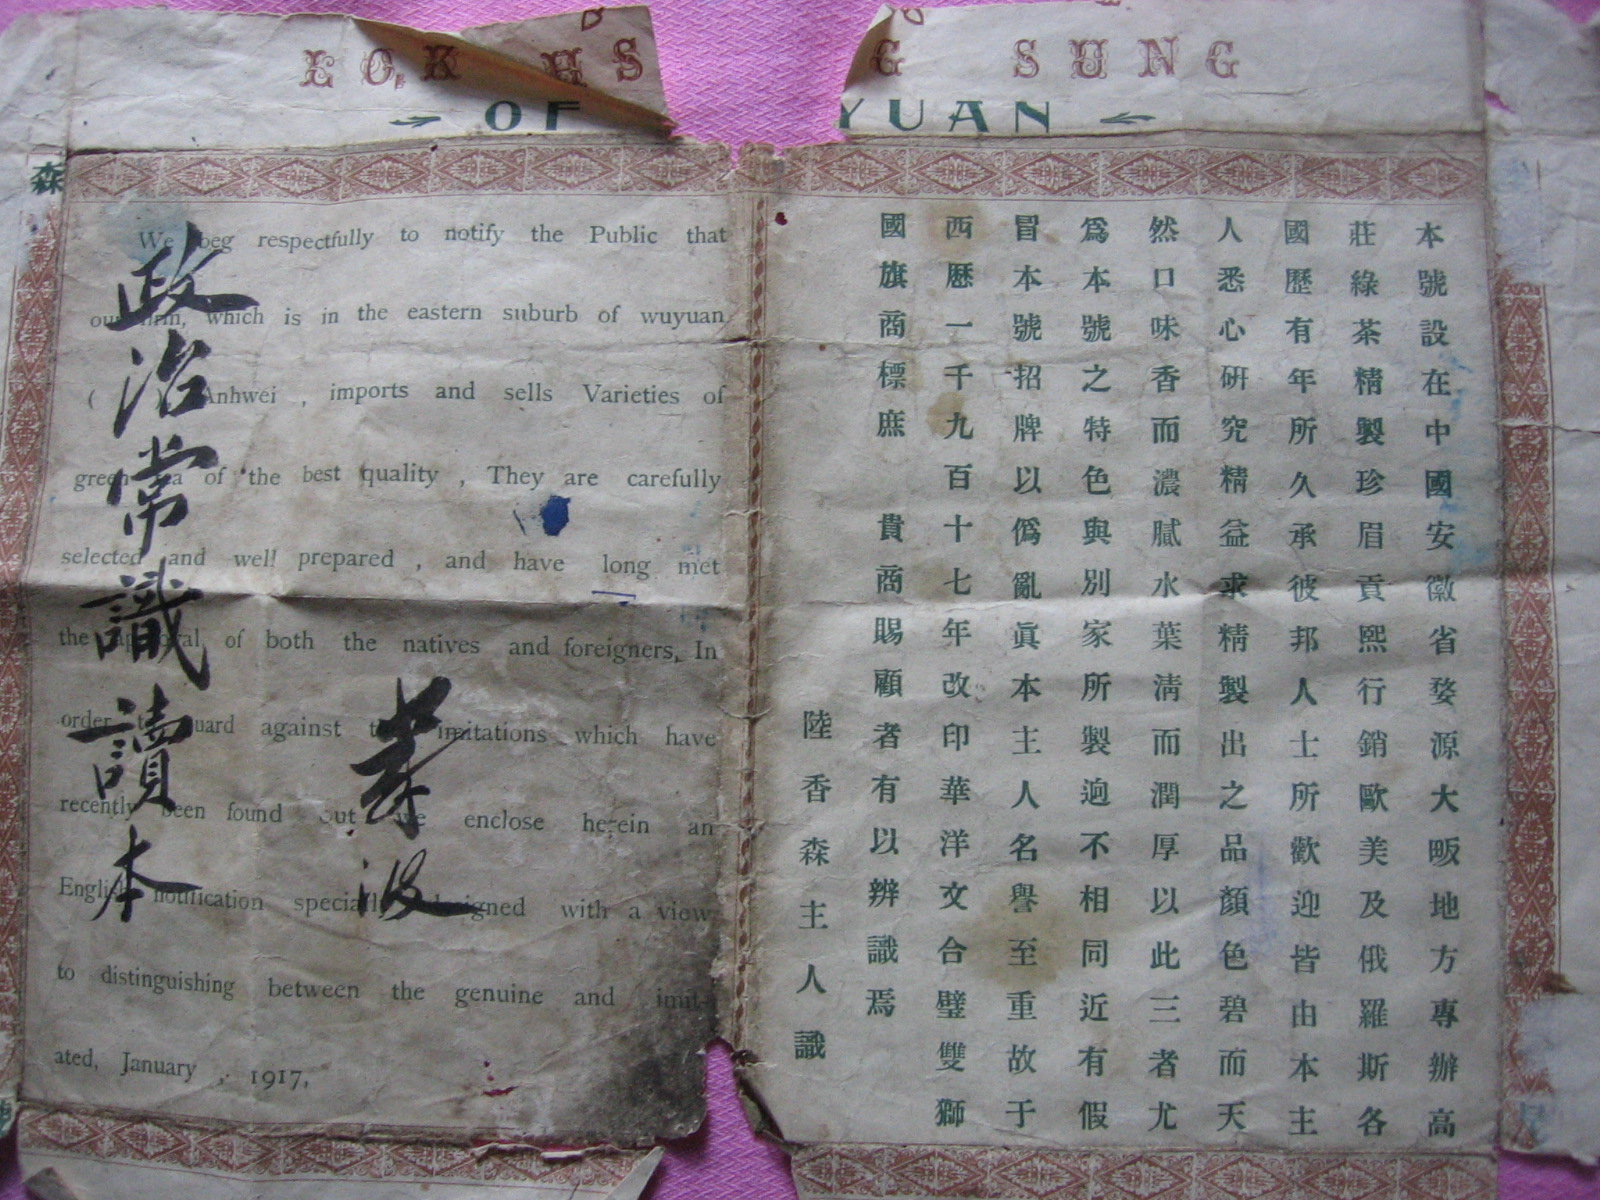 LOK HS G SUNG
OF YUAN
森
We beg respectfully to notify the Public that
our firm, which is in the eastern suburb of wuyuan
( Anhwei , imports and sells Varieties of
green tea of the best quality , They are carefully
selected and well prepared , and have long met
the approval of both the natives and foreigners, In
order to guard against the imitations which have
recently been found out we enclose herein an
English notification specially designed with a view
to distinguishing between the genuine and imit-
ated, January , 1917,
政治常識讀本
本號設在中國安徽省婺源大畈地方專辦高
莊綠茶精製珍眉貢熙行銷歐美及俄羅斯各
國歷有年所久承彼邦人士所歡迎皆由本主
人悉心研究精益求精製出之品顏色碧而天
然口味香而濃膩水葉清而潤厚以此三者尤
為本號之特色與別家所製迥不相同近有假
冒本號招牌以偽亂眞本主人名譽至重故于
西歷一千九百十七年改印華洋文合璧雙獅
國旗商標庶 貴商賜顧者有以辨識焉
陸香森主人識